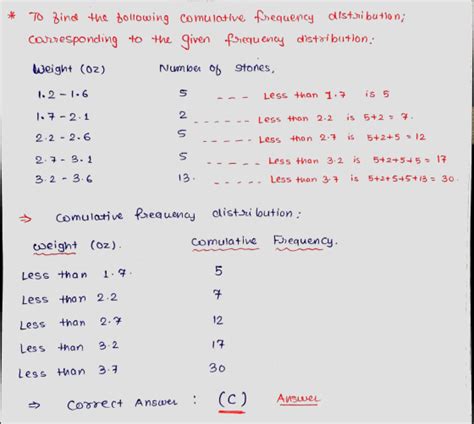 * To find the following comulative frequency distribution;
corresponding to the given frequency distribution:
Weight (OZ) Number of Stones,
1.2 - 1.6 5 ---- Less than 1.7 is 5
1.7 - 2.1 2 ------ Less than 2.2 is 5+2 = 7.
2.2 - 2.6 5 ----- Less than 2.7 is 5+2+5 = 12
2.7 - 3.1 5 ---- Less than 3.2 is 5+2+5+5 = 17
3.2 - 3.6 13. ---- Less than 3.7 is 5+2+5+5+13 = 30.
⇒ Comulative frequency distribution:
Weight (OZ). Comulative Frequency.
Less than 1.7. 5
Less than 2.2 7
Less than 2.7 12
Less than 3.2 17
Less than 3.7 30
⇒ Correct Answer : (C) Answer